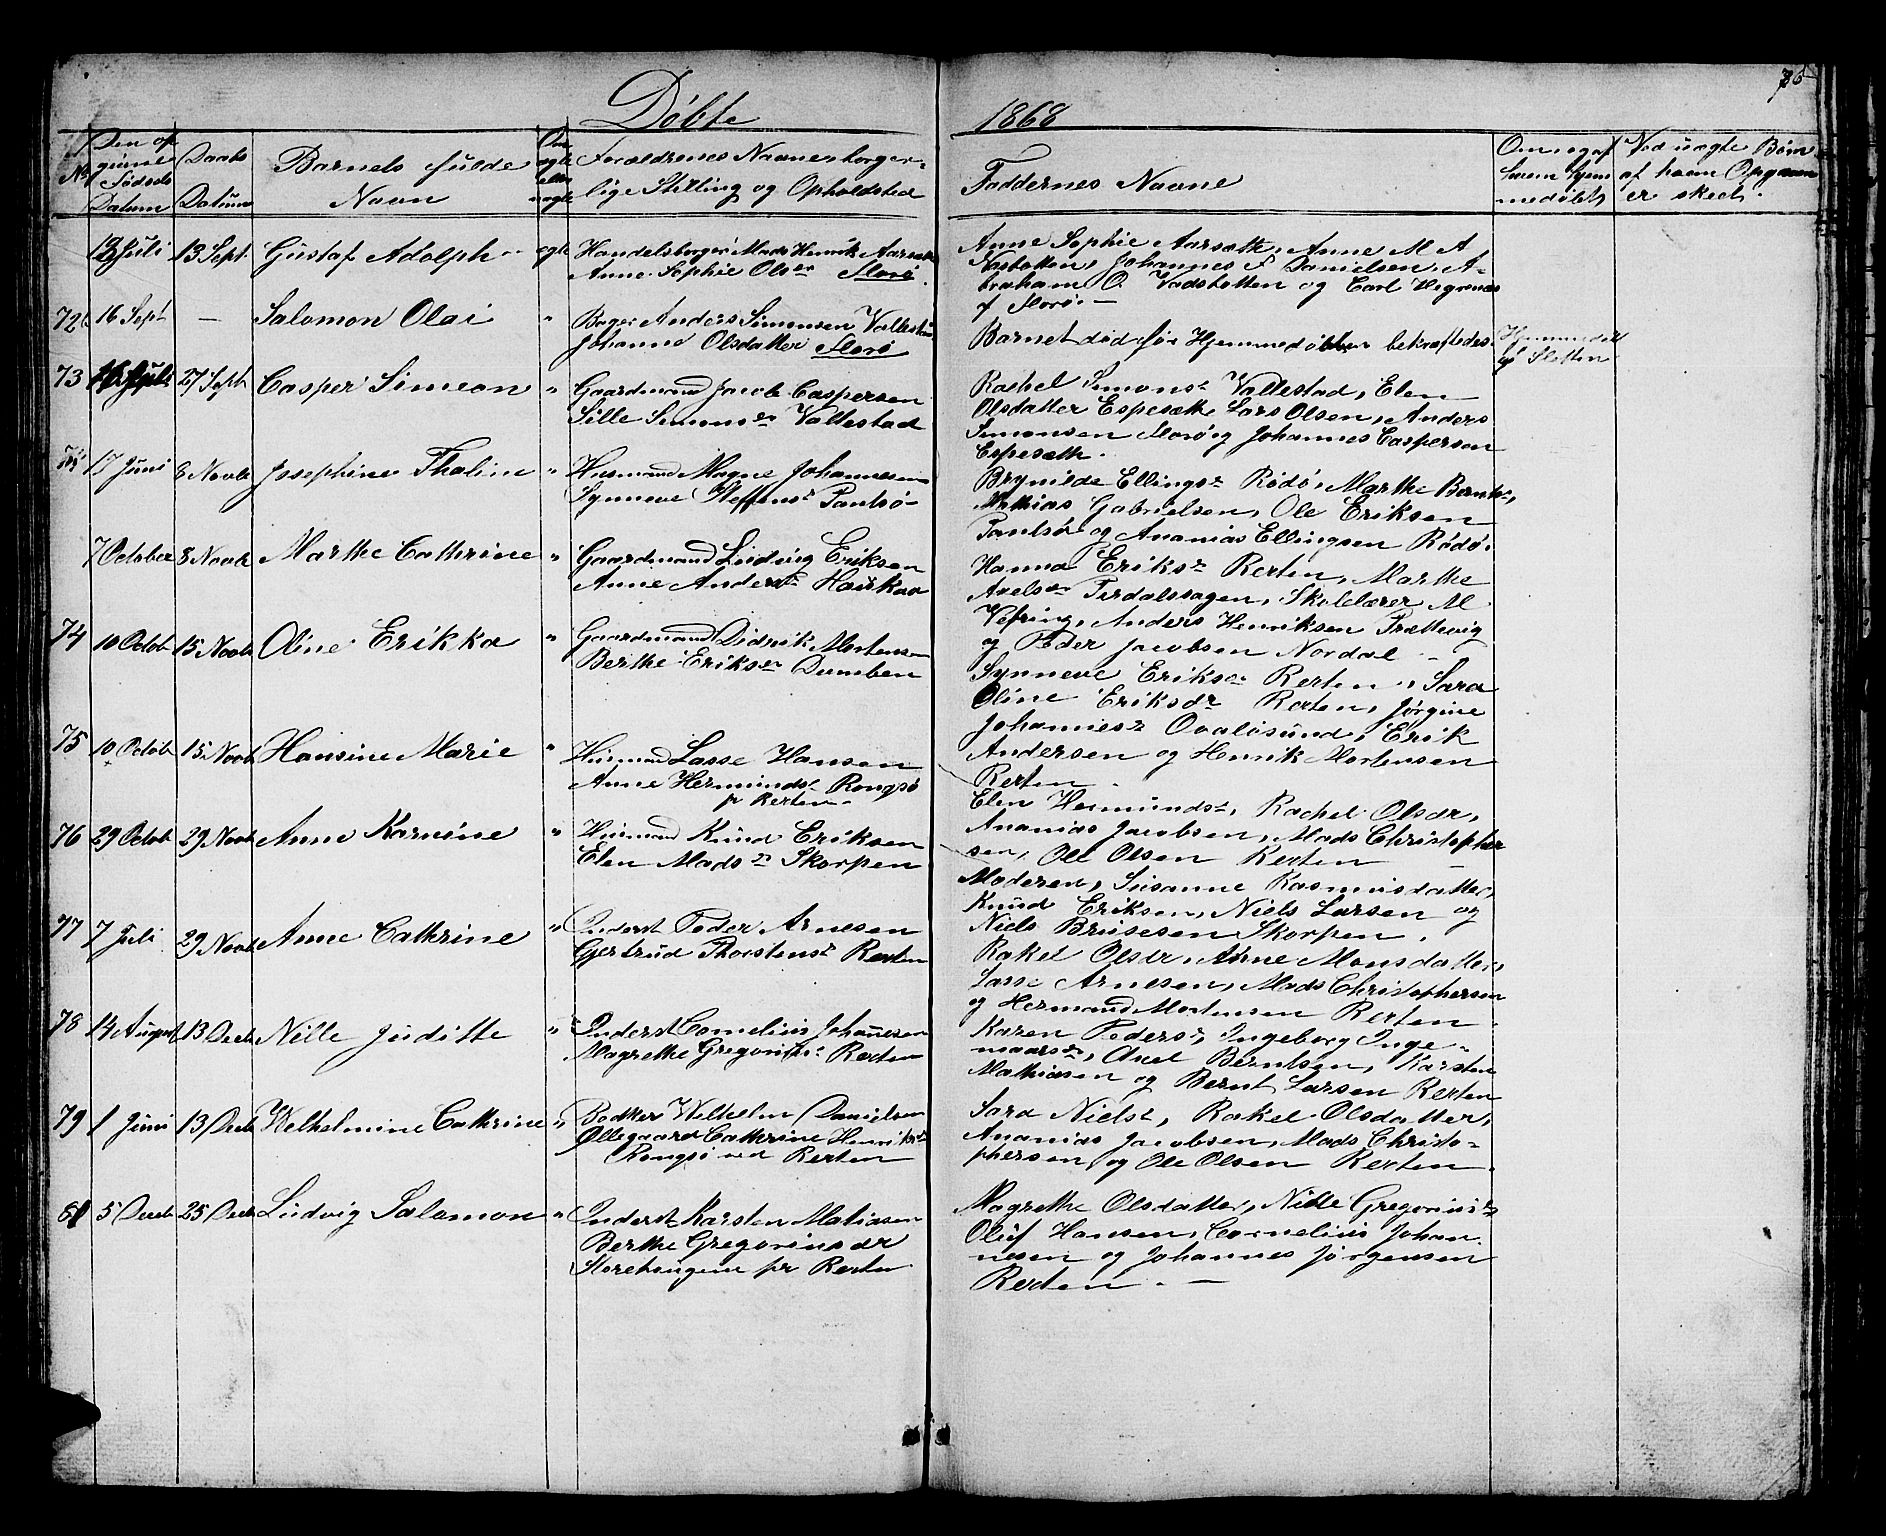 Døbte
1868
No
Den op
givne
Fødsels
Datum
Daabs
Datum
Barnets fulde
Navn
Om
ægte
eller
uægte
Forældrenes Navne, borger-
lige Stilling og Opholdsted
Faddernes Navne
medøbt
Ved uægte Børn
er skeet.
Juli 13 Sept. Gustaf Adolph ægte Handelsborger Mads Henrik
Anne Sophie Olsdr Florø.
Anne Sophie Aarsæth, Anne M A
Johannes F Danielsen, A-
braham O. Vadstotten og Carl
af Florø. —
72 16 Sept — Salomon Olai " Anders Simonsen
Johanne Olsdatter Florø
Barnet død før Hjemmedøbtur bekræftedes.
73 27 Sept Casper Simeon " Gaardmand Jacob Caspersen
Sille Simonsdr Vallestad
Rachel Simonsdr Vallestad, Elen
Olsdatter Espesæth, Lars Olsen, Anders
Simonsen Florø og Johannes Caspersen
Espesæth.
17 Juni 8 Novb Josephine Thaline " Husmand Magne Johannesen
Synneve Steffensdr
Brynilde Ellingsdr Rødø, Marthe
Mathias Gabrielsen, Ole Eriksen
og Ananias Ellingsen Rødø.
7 October 8 Novb Marthe Cathrine " Gaardmand Ludvig Eriksen
Anne Andersdr
Hanna Eriksdr Rerten, Marthe
Axelsdr Skolelærer M
Vefring, Anders Henriksen Trættevig
og Peder Jacobsen Nordal —
74 10 Octob 15 Novb Oline Erikka " Gaardmand Didrik Mortensen
Berthe Eriksdr Dumben
Synneve Eriksdr Rerten, Sara
Oline Eriksdr Rerten, Jørgine
Johannesdr Erik
Andersen og Henrik Mortensen
Rerten.
75 10 Octob 15 Novb Hansine Marie " Husmand Lasse Hansen
Anne Hermundsdr Rongsø
pr Rerten.
Elen Hermundsdr, Rachel Olsdr,
Ananias Jacobsen, Mads Christopher
sen, Ole Olsen Rerten —
76 29 Octob 29 Novb Anne Karnine " Husmand Knud Eriksen
Elen Madsdr Skorpen
Moderen, Susanne Rasmusdatter,
Knud Eriksen, Niels Larsen og
Niels Skorpen.
77 7 Juli 29 Novb Anne Cathrine " Inderst Peder Arnesen
Gjertrud Thorstensdr Rerten
Rakel Olsdr, Anne Monsdatter,
Lasse Arnesen, Mads Christophersen
og Hermand Mortensen Rerten.
78 14 August 13 Decb Nille Juditte " Inderst Cornelius Johanesen
Magrethe Gregoriusdr Rerten
Karen Pedersdr, Ingeborg Inge-
maarsdr, Axel Berntsen, Karsten
Mathiasen og Bernt Larsen Rerten
79 1 Juni 13 Decb Welhelmine Cathrine " Bødker Welhelm Danielsen
Ollegaard Cathrine Henriksdr
Rongsø ved Rerten
Sara Nielsdr, Rakel Olsdatter,
Ananias Jacobsen, Mads Christo-
phersen, og Ole Olsen Rerten.
81 5 Decb 25 Decb Ludvig Salomon " Inderst Karsten Matiasen
Berthe Gregoriusdr
Storehaugene pr Rerten
Magrethe Olsdatter, Nille Gregoriusdr
Oluf Hansen, Cornelius Johan
nesen og Johannes Jørgensen
Rerten. —